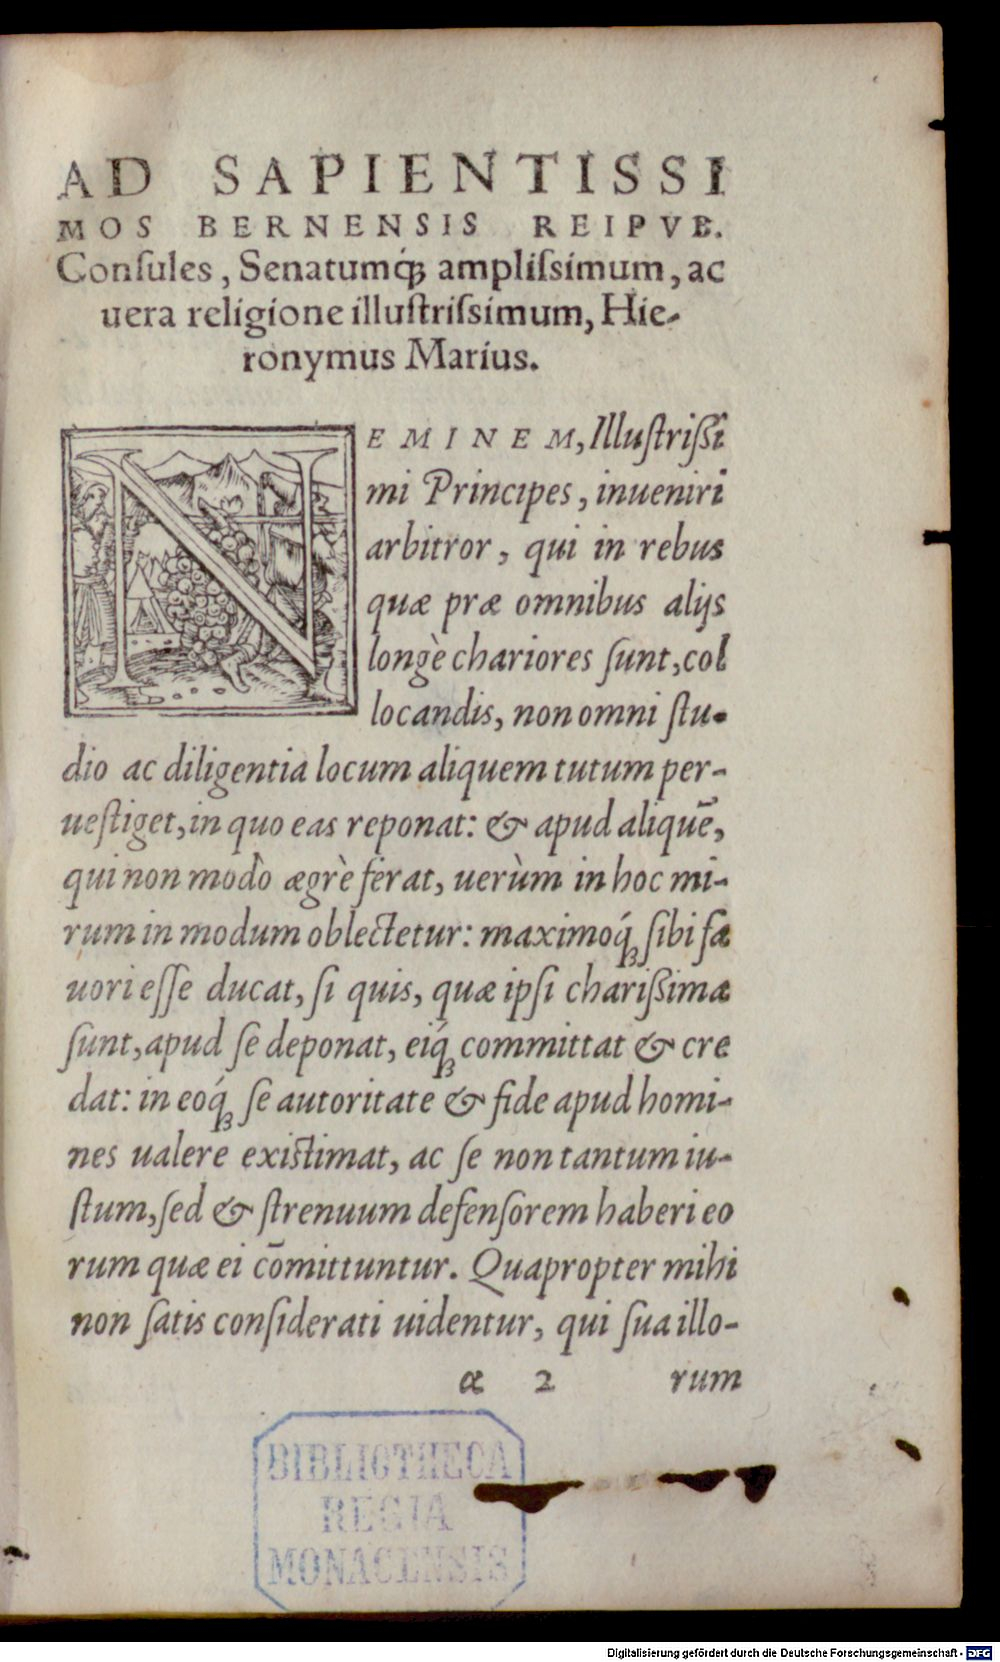 AD SAPIENTISSI
MOS BERNENSIS REIPVB.
Conſules, Senatumq́ꝫ ampliſsimum, ac
uera religione illuſtriſsimum, Hie-
ronymus Marius.
NEMINEM, Illuſtrißi
mi Principes, inueniri
arbitror, qui in rebus
quæ præ omnibus alijs
longè chariores ſunt, col
locandis, non omni ſtu-
dio ac diligentia locum aliquem tutum per-
ueſtiget, in quo eas reponat: & apud aliquē,
qui non modò ægrè ferat, uerùm in hoc mi-
rum in modum oblectetur: maximoq́ꝫ ſibi fa
uori eſſe ducat, ſi quis, quæ ipſi charißima
ſunt, apud ſe deponat, eiq́ꝫ committat & cre
dat: in eoq́ꝫ ſe autoritate & fide apud homi-
nes ualere existimat, ac ſe non tantum iu-
ſtum, ſed & ſtrenuum defenſorem haberi eo
rum quæ ei cōmittuntur. Quapropter mihi
non ſatis conſiderati uidentur, qui ſua illo-
α 2 rum
BIBLIOTHECA
REGIA
MONACENSIS
Digitalisierung gefördert durch die Deutsche Forschungsgemeinschaft - DFG